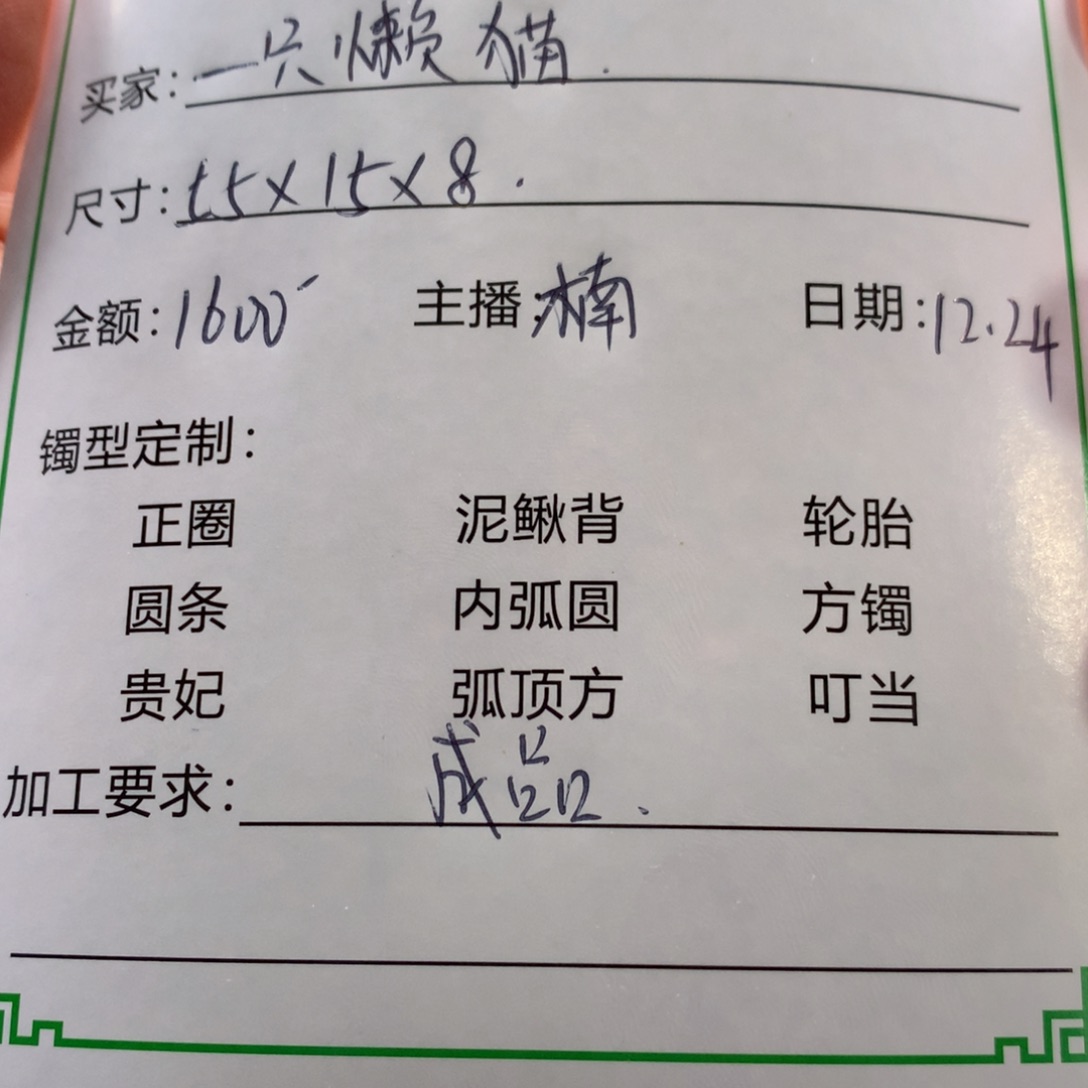 买家：一只懒猫.
尺寸：55×15×8.
金额：1600 主播：楠 日期：12.24
镯型定制：
正圈 泥鳅背 轮胎
圆条 内弧圆 方镯
贵妃 弧顶方 叮当
加工要求：成品.